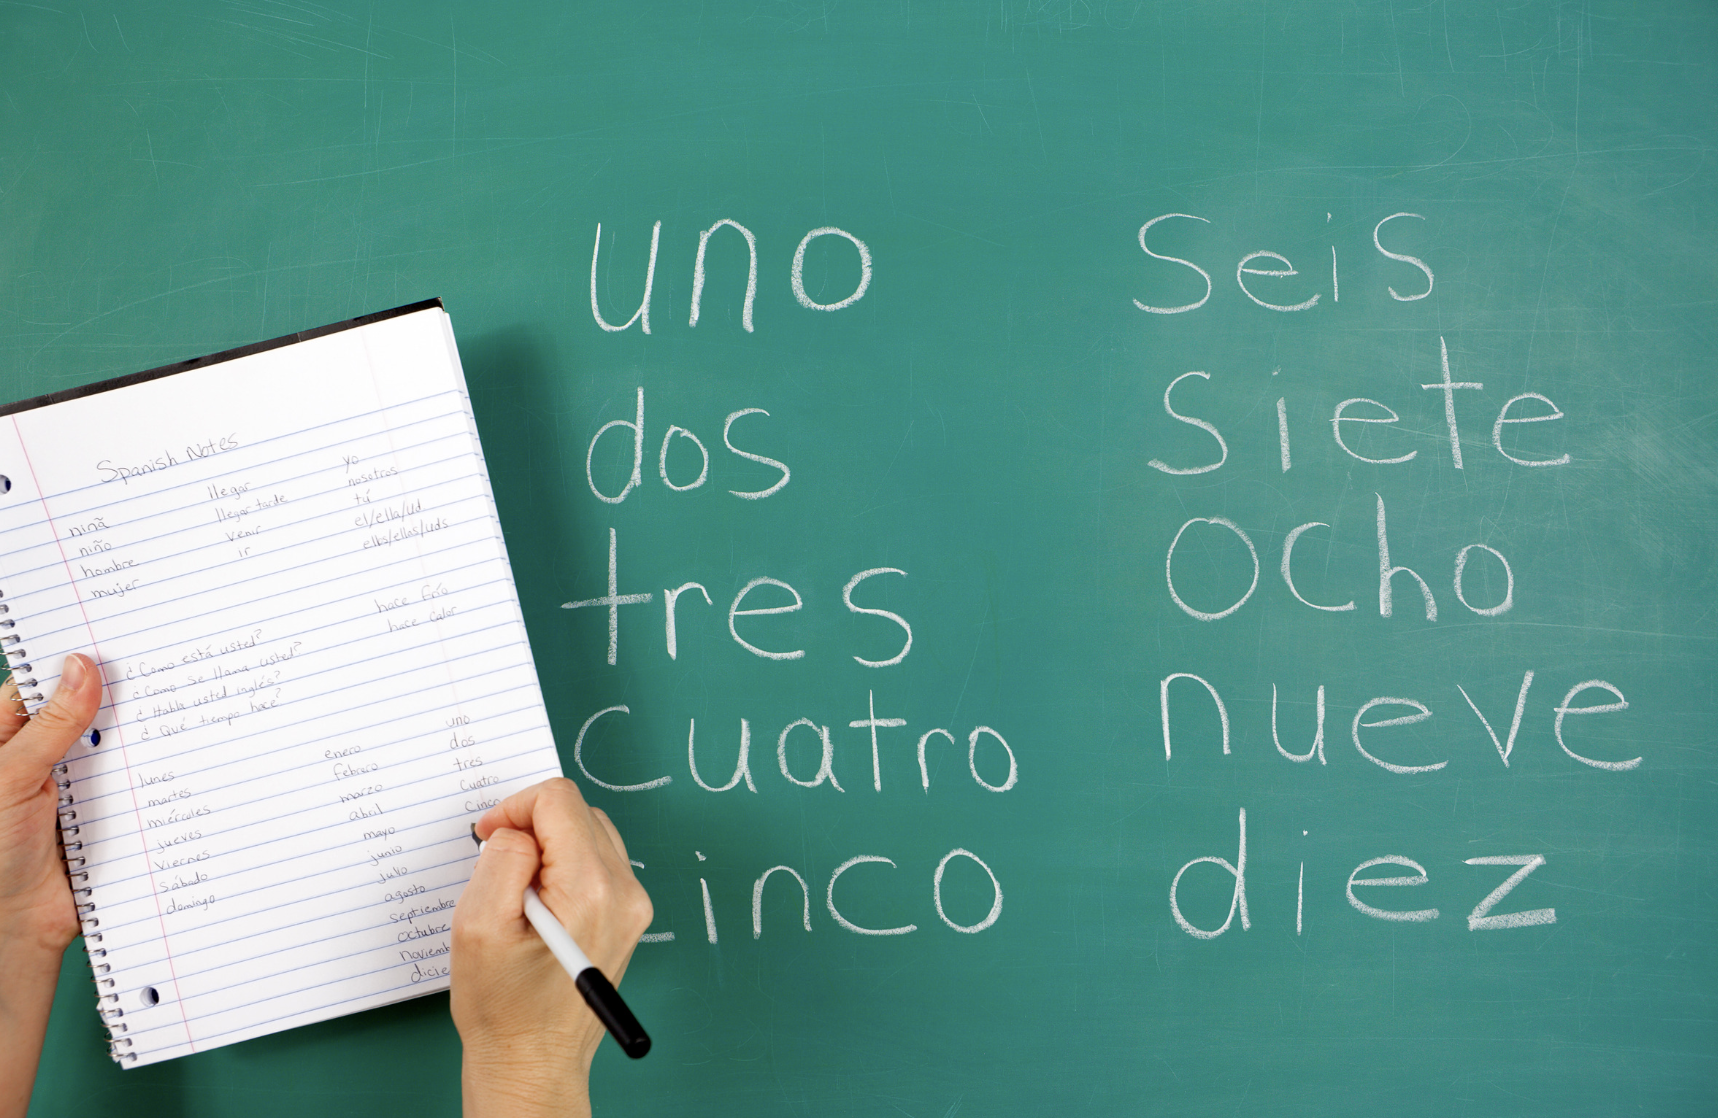 Spanish Notes
ninã
niño
hombre
mujer
llegar
llegar tarde
venir
ir
yo
nosotros
tú
el/ella/ud.
ellos/ellas/uds
¿Como está usted?
¿Como se llama usted?
¿Habla usted inglés?
¿Qué tiempo hace?
hace frío
hace calor
lunes
martes
miércoles
jueves
viernes
sábado
domingo
enero
febrero
marzo
abril
mayo
junio
julio
agosto
septiembre
octubre
noviemb
dicie
uno
dos
tres
cuatro
cinco
uno
dos
tres
cuatro
cinco
seis
siete
ocho
nueve
diez